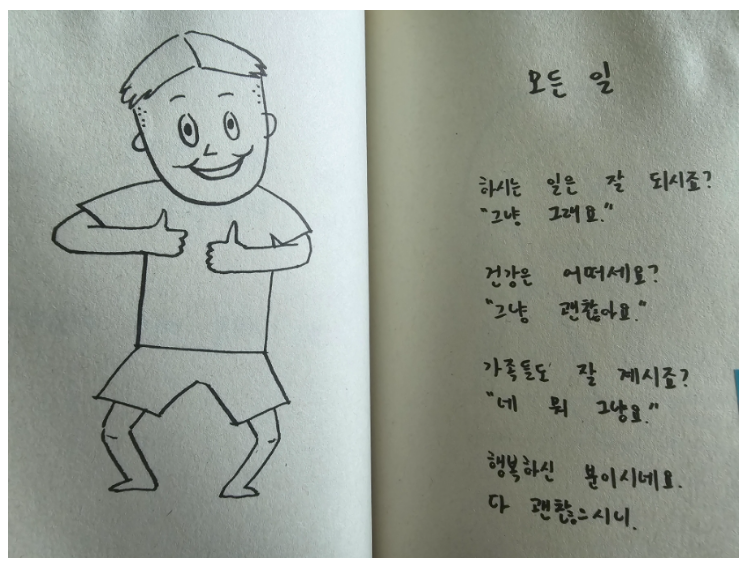 모든 일
하시는 일은 잘 되시죠?
"그냥 그래요."
건강은 어떠세요?
"그냥 괜찮아요."
가족들도 잘 계시죠?
"네 뭐 그냥요."
행복하신 분이시네요.
다 괜찮으시니.